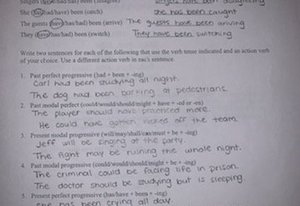 She (has/had) been (catch) She has been caught
The guests (have/has/had) been (arrive) The guests have been arriving
They (have/has/had) been (switch) They have been switching
Write two sentences for each of the following that use the verb tense indicated and an action verb
of your choice. Use a different action verb in each sentence.
1. Past perfect progressive (had + been + -ing)
Carl had been studying all night.
The dog had been barking at pedestrians.
2. Past modal perfect (could/would/should/might + have + -ed or -en)
The player should have practiced more.
He could have gotten kicked off the team.
3. Present modal progressive (will/may/shall/can/must + be + -ing)
Jeff will be singing at the party.
The fight may be ruining the whole night.
4. Past modal progressive (could/would/should/might + be + -ing)
The criminal could be facing life in prison.
The doctor should be studying but is sleeping.
5. Present perfect progressive (has/have + been + -ing)
has been crying all day.